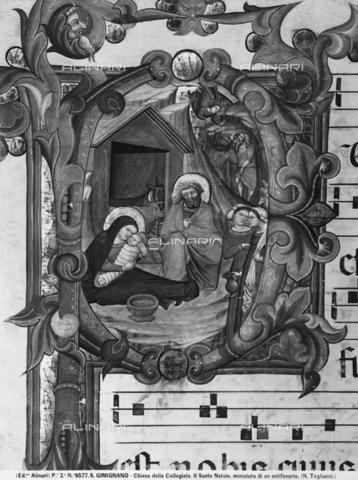 ALINARI
ALINARI
ALINARI
ALINARI
ALINARI
ALINARI
est nobis cuius
(Ed.ne Alinari) P.e 2.a N.o 9577. S. GIMIGNANO - Chiesa della Collegiata. Il Santo Natale, miniatura di un antifonario. (N. Tegliacci.)